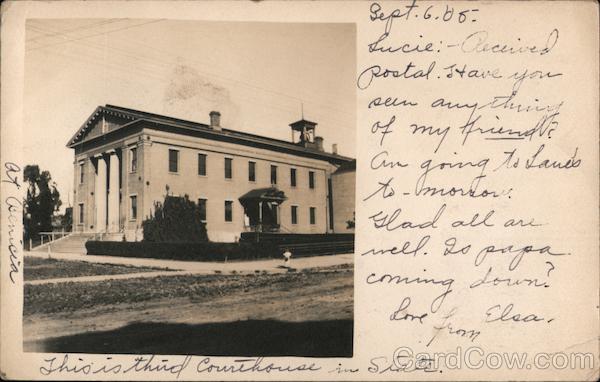 Sept. 6. 05.
Lucie:- Received
postal. Have you
seen anything
of my friend?
Am going to Lane's
to-morrow.
Glad all are
well. Is papa
coming down?
Love from Elsa.
At Benicia
This is third Courthouse in State.
CardCow.com